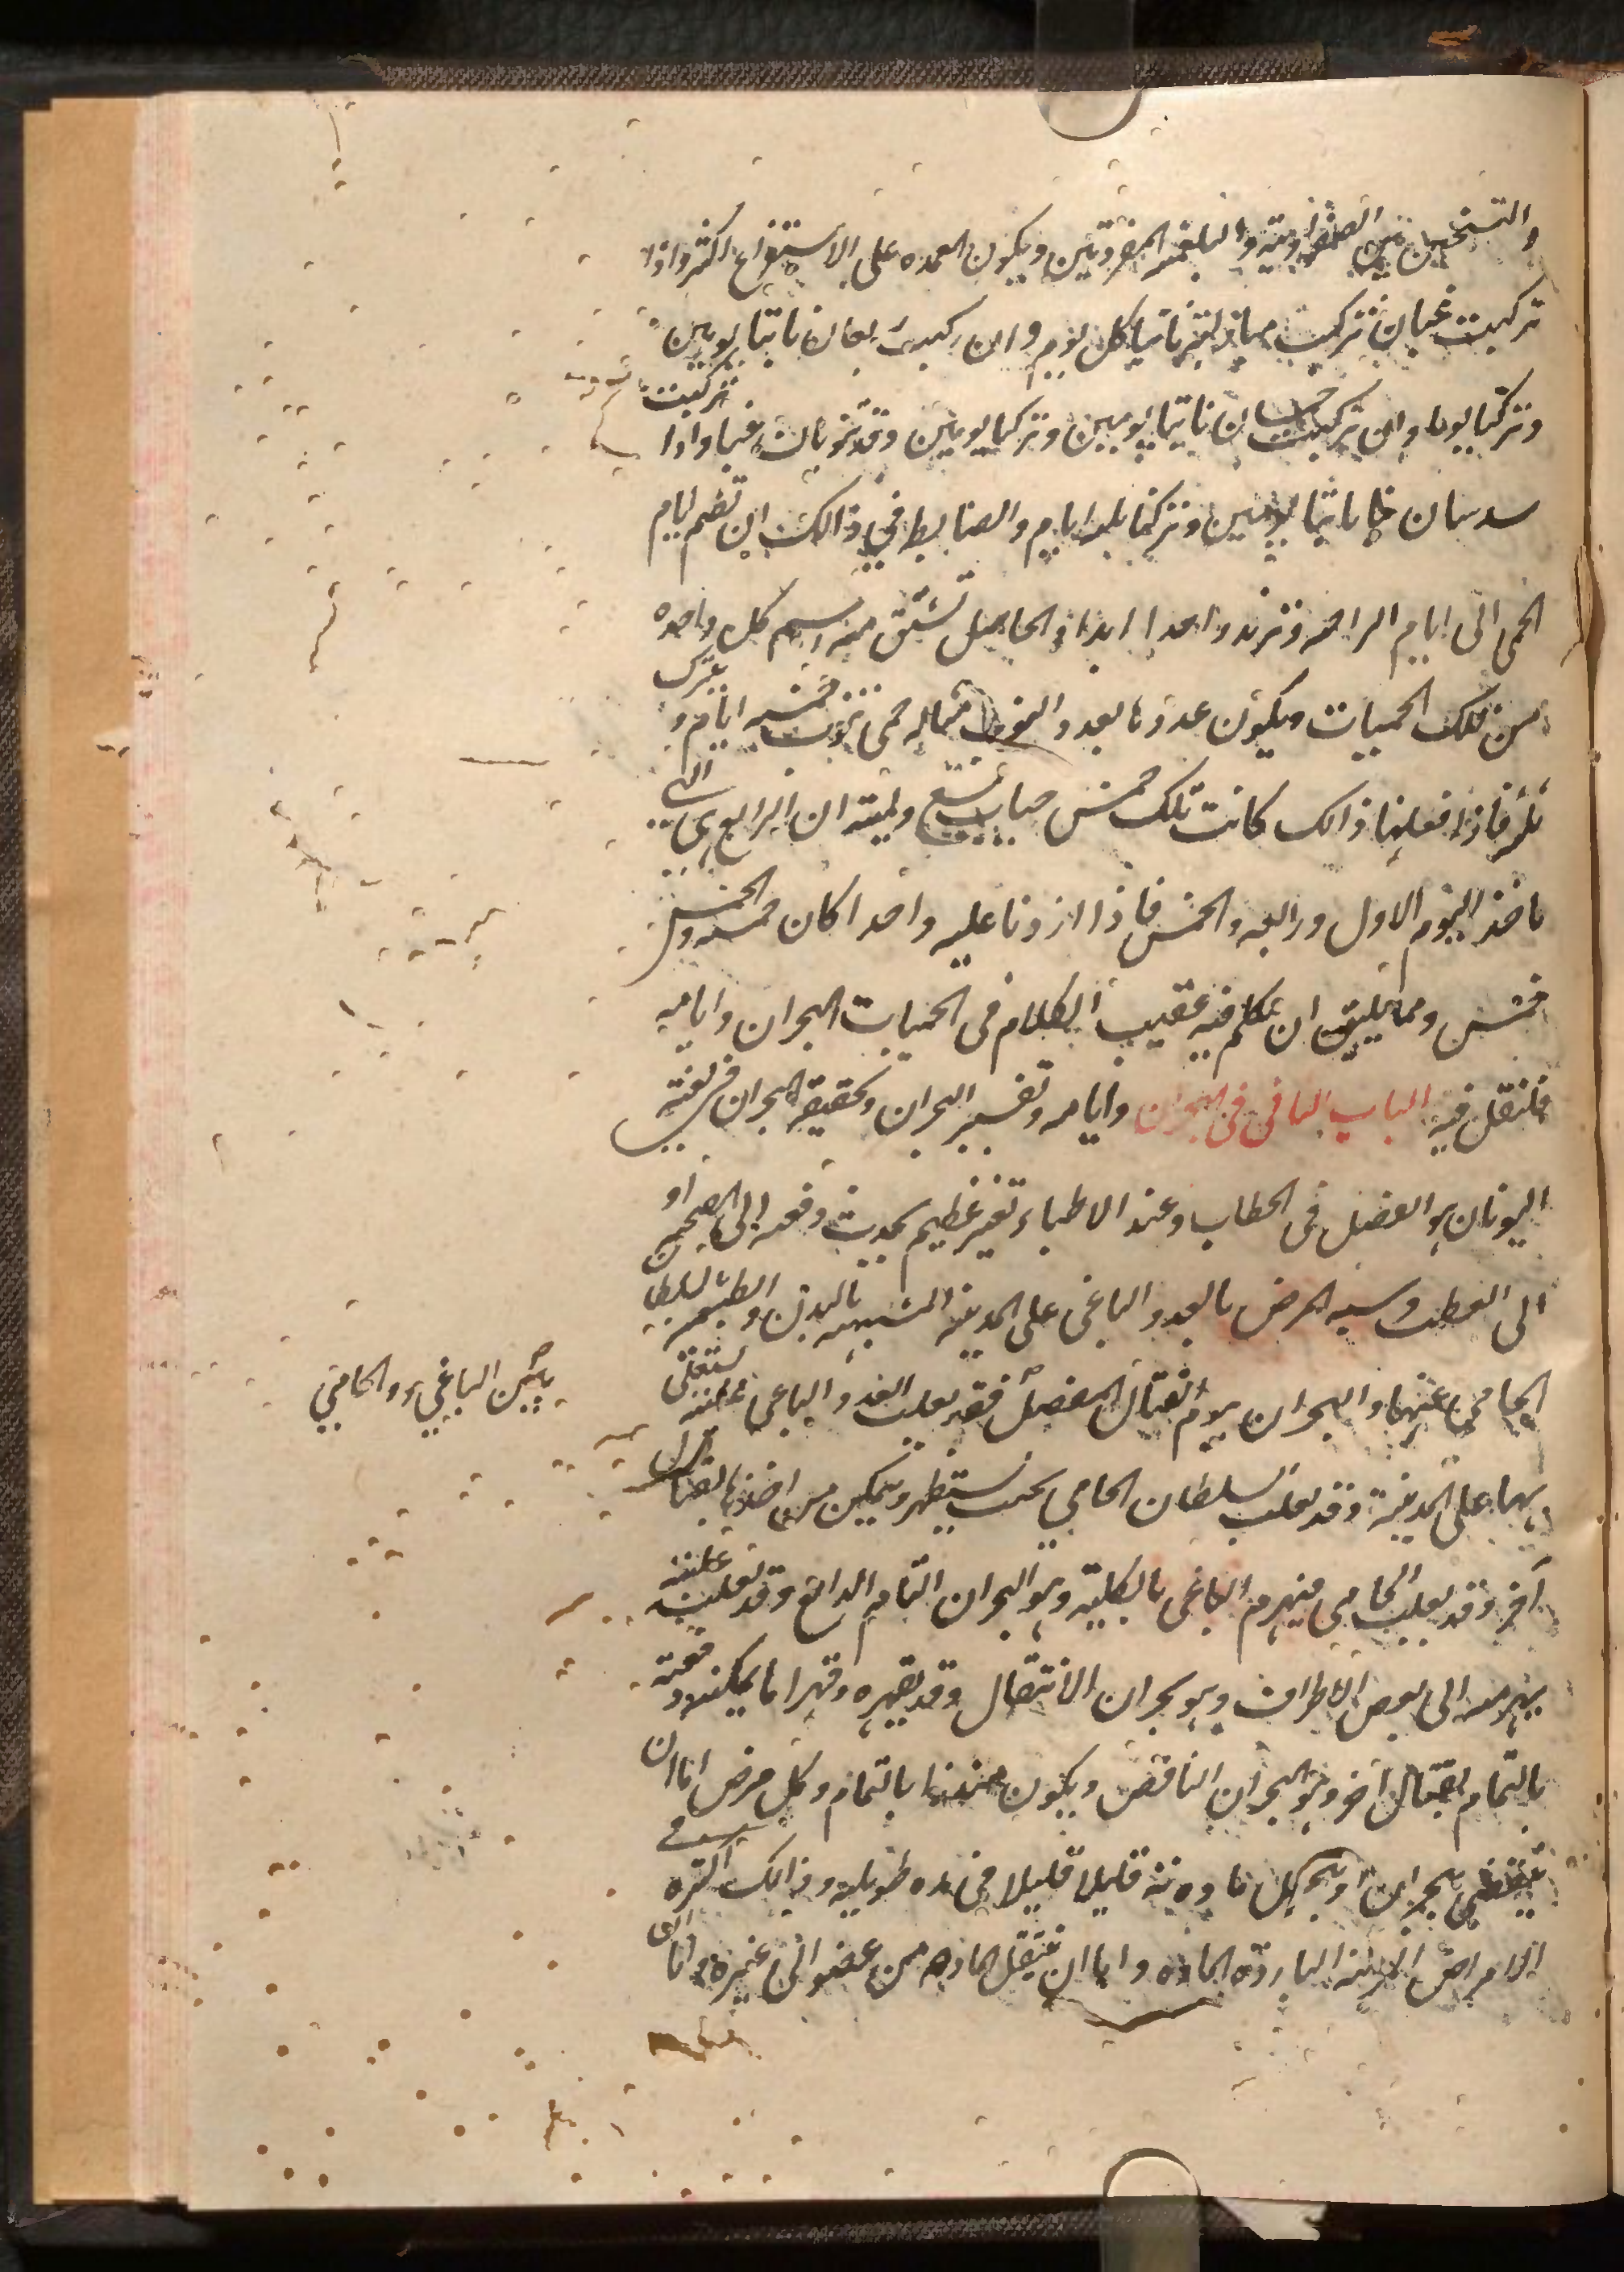 والتسخين بين الصفراوية والبلغمية المفردتين ويكون العمده على الاستفراغ اكثر واذا
تركبت غبان تركبت مباد لتر ناتيا كل يوم وان ركبت ربعان ناتبا يومين
وتركتا يوما وان تركبت خمسان ناتبا يومين وتركتا يومين وقد تنوبان غبا واذا تركبت
سدسان نابتا يومين وتركتا ثلثه ايام والضابط في ذالك ان تضم ايام
الحمى الى ايام الراحه وتزيد واحدا ابدا والحاصل تشتق منه اسم كل واحده
من تلك الحميات ويكون عددها بعدد النوب مثاله حمى تنوب خمسه ايام و تترك
ثلثه فاذا فعلنا ذالك كانت تلك خمس حميات تسع ولميته ان الرابع هى التى
تاخذ اليوم الاول ورابعه والخمس فاذا ازدنا عليه واحدا كان خمسه والخمس
خمس ومما يليق ان نتكلم فيه عقيب الكلام فى الحميات البحران وايامه
فلنقل فيه الباب الثانى فى البحران وايامه وتفسير البحران وتحقيقه البحران فى لغة
اليونان هو الفصل فى الخطاب وعند الاطباء تغير عظيم يحدث دفعه الى الصحه او
الى العطب وسبه المرض بالعدو الباغى على المدينه المشبهه بالبدن والطبيعه بالسلطان
الحامى عنها والبحران بيوم القتال المفصل فقد يغلب العدو الباغى غلبته يستولى
بين الباغي والحامي
بها على المدينة وقد يغلب السلطان الحامي بحيث يستظهر ويتمكن من اخذها بقتال
آخر وقد يغلب الحامى فيهزم الباغى بالكلية وهو البحران التام الدافع وقد يغلب غلبته
يهزمه الى بعض الاطراف وهو بحران الانتقال وقد يقهره وقهرا ما يمكنه دفعه
بالتمام بقتال آخر وهو البحران الناقص ويكون منذرا بالتمام وكل مرض اما ان
ينقضى ببحران او يتحلل مادته قليلا قليلا فى مده طويله وذالك اكثره فى
الامراض المزمنه الباردة الماده واما ان ينتقل الماده من عضو الى غيره واما الى